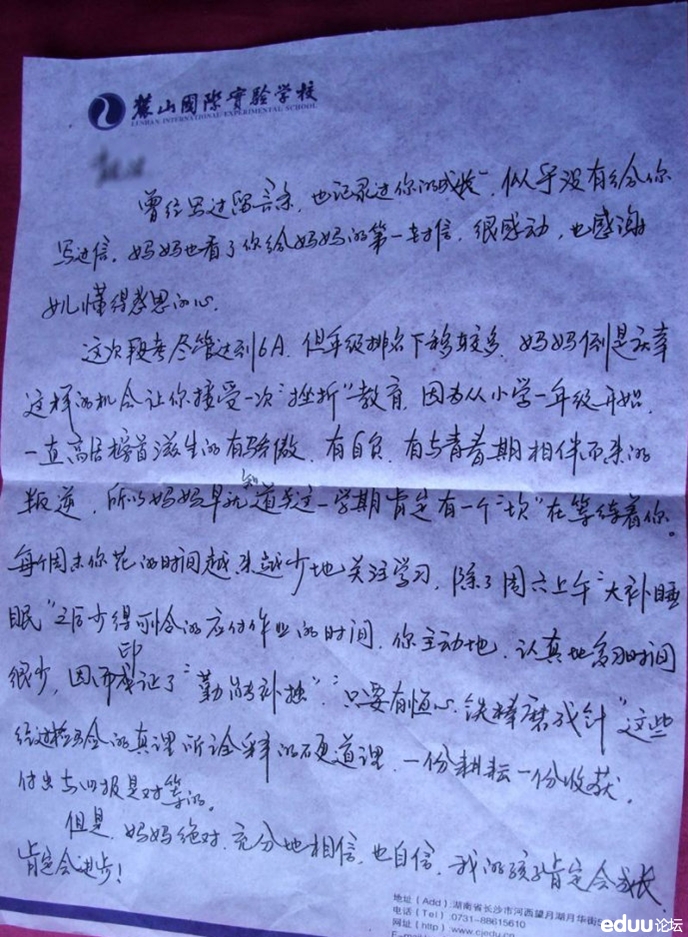 麓山國際實驗学校
LUSHAN INTERNATIONAL EXPERIMENTAL SCHOOL
曾经写过留言条,也记录过你的成长,似乎没有给你
写过信,妈妈也看了你给妈妈的第一封信,很感动,也感谢
女儿懂得感恩的心.
这次段考尽管达到6A,但年级排名下移较多,妈妈倒是庆幸
这样的机会让你接受一次“挫折”教育,因为从小学一年级开始,
一直高居榜首滋生的有骄傲,有自负,有与青春期相伴而来的
叛逆,所以妈妈早就知道这一学期肯定有一个“坎”在等待着你。
每个周末你花的时间越来越少地关注学习,除了周六上午“大补睡
眠”之后少得可怜的应付作业的时间,你主动地、认真地学习时间
很少,因而印证了“勤能补拙”,“只要有恒心,铁棒磨成针”这些
经过检验的真理所诠释的硬道理,一份耕耘一份收获,
付出与回报是对等的。
但是,妈妈绝对、充分地相信,也自信,我的孩子肯定会成长,
肯定会进步!
地址(Add):湖南省长沙市河西望月湖月华街
电话(Tel):0731-88615610
网址(http):www.cjedu.cn
eduu论坛